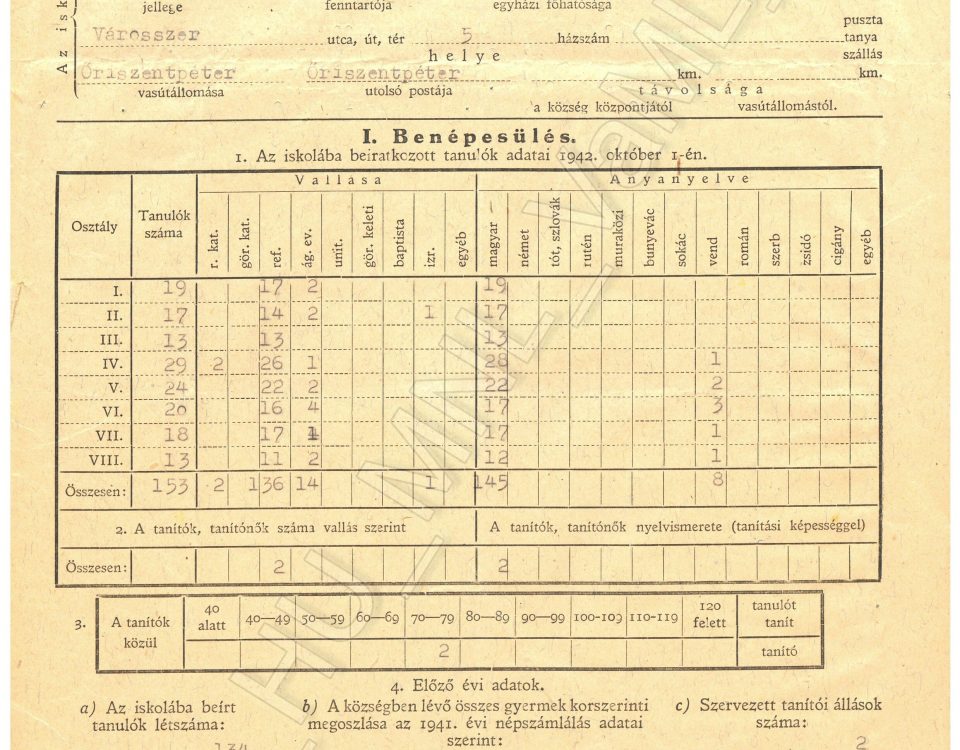 Az isk
jellege fenntartója egyházi főhatósága
Városszer utca, út, tér 5 házszám puszta
tanya
szállás
helye
Őriszentpéter Őriszentpéter km. km.
vasútállomása utolsó postája távolsága
a község központjától vasútállomástól.
I. Benépesülés.
1. Az iskolába beiratkozott tanulók adatai 1942. október 1-én.
Vallása Anyanyelve
Osztály Tanulók száma r. kat. gör. kat. ref. ág. ev. unit. gör. keleti baptista izr. egyéb magyar német tót, szlovák rutén muraközi bunyevác sokác vend román szerb zsidó cigány egyéb
I. 19 17 2 19
II. 17 14 2 1 17
III. 13 13 13
IV. 29 2 26 1 28 1
V. 24 22 2 22 2
VI. 20 16 4 17 3
VII. 18 17 1 17 1
VIII. 13 11 2 12 1
Összesen: 153 2 136 14 1 145 8
2. A tanítók, tanítónők száma vallás szerint A tanítók, tanítónők nyelvismerete (tanítási képességgel)
Összesen: 2 2
3. A tanítók közül 40 alatt 40—49 50—59 60—69 70—79 80—89 90—99 100-109 110-119 120 felett tanulót tanít
2 tanító
4. Előző évi adatok.
a) Az iskolába beírt b) A községben lévő összes gyermek korszerinti c) Szervezett tanítói állások
tanulók létszáma: megoszlása az 1941. évi népszámlálás adatai száma:
szerint:
134 2
HU_MNL_VaML